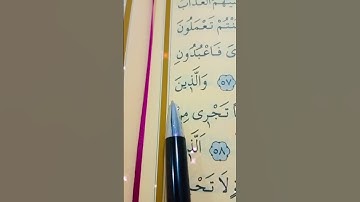 الْعَذَابُ
تَعْمَلُونَ
فَاعْبُدُونِ
﴿٥٧﴾ وَالَّذ۪ينَ
تَجْر۪ى مِنْ
﴿٥٨﴾ اَلَّذ۪
وَلَا تَحْ